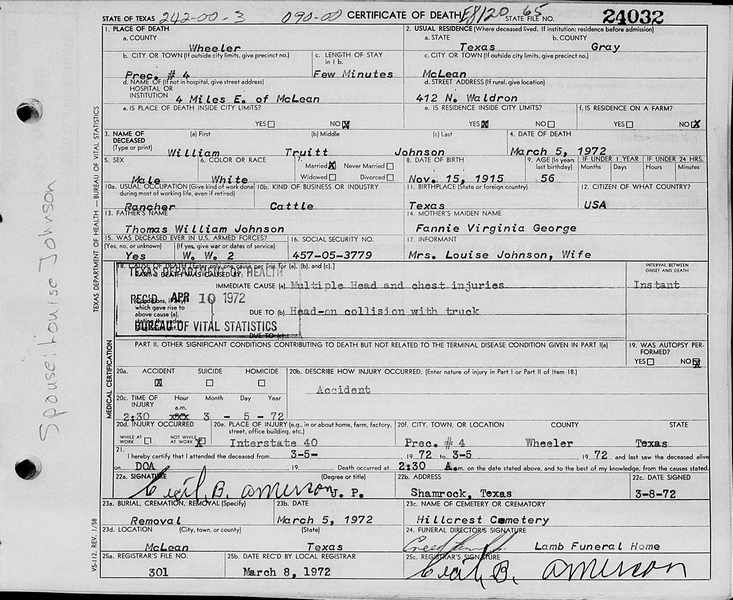 STATE OF TEXAS 242-00-3 090-00 CERTIFICATE OF DEATH E8120 65 STATE FILE NO. 24032
1. PLACE OF DEATH
a. COUNTY
Wheeler
2. USUAL RESIDENCE (Where deceased lived. If institution: residence before admission)
a. STATE b. COUNTY
Texas Gray
b. CITY OR TOWN (If outside city limits, give precinct no.) c. LENGTH OF STAY in 1 b.
Prec. # 4 Few Minutes
c. CITY OR TOWN (If outside city limits, give precinct no.)
McLean
d. NAME OF (If not in hospital, give street address) HOSPITAL OR INSTITUTION
4 Miles E. of McLean
d. STREET ADDRESS (If rural, give location)
412 N. Waldron
e. IS PLACE OF DEATH INSIDE CITY LIMITS?
YES NO X
e. IS RESIDENCE INSIDE CITY LIMITS? f. IS RESIDENCE ON A FARM?
YES X NO YES NO X
3. NAME OF DECEASED (Type or print) (a) First (b) Middle (c) Last 4. DATE OF DEATH
William Truitt Johnson March 5, 1972
5. SEX 6. COLOR OR RACE 7. Married X Never Married Widowed Divorced 8. DATE OF BIRTH 9. AGE (In years last birthday) IF UNDER 1 YEAR Months Days IF UNDER 24 HRS. Hours Min.
Male White Nov. 15, 1915 56
10a. USUAL OCCUPATION (Give kind of work done during most of working life, even if retired) 10b. KIND OF BUSINESS OR INDUSTRY 11. BIRTHPLACE (State or foreign country) 12. CITIZEN OF WHAT COUNTRY?
Rancher Cattle Texas USA
13. FATHER'S NAME 14. MOTHER'S MAIDEN NAME
Thomas William Johnson Fannie Virginia George
15. WAS DECEASED EVER IN U.S. ARMED FORCES? (Yes, no, or unknown) (If yes, give war or dates of service) 16. SOCIAL SECURITY NO. 17. INFORMANT
Yes W. W. 2 457-05-3779 Mrs. Louise Johnson, Wife
18. CAUSE OF DEATH (Enter only one cause per line for (a), (b), and (c).) INTERVAL BETWEEN ONSET AND DEATH
TEXAS DEPARTMENT OF HEALTH
PART I. DEATH WAS CAUSED BY:
IMMEDIATE CAUSE (a) Multiple Head and chest injuries Instant
REC'D APR 10 1972
which gave rise to above cause (a), stating the under
DUE TO (b) Head-on collision with truck
BUREAU OF VITAL STATISTICS
DUE TO (c)
PART II. OTHER SIGNIFICANT CONDITIONS CONTRIBUTING TO DEATH BUT NOT RELATED TO THE TERMINAL DISEASE CONDITION GIVEN IN PART I(a) 19. WAS AUTOPSY PERFORMED?
YES NO X
20a. ACCIDENT X SUICIDE HOMICIDE 20b. DESCRIBE HOW INJURY OCCURRED. (Enter nature of injury in Part I or Part II of Item 18.)
Accident
20c. TIME OF INJURY Hour Month Day Year
a.m.
2:30 xxx 3 - 5 - 72
20d. INJURY OCCURRED WHILE AT WORK NOT WHILE AT WORK X 20e. PLACE OF INJURY (e.g., in or about home, farm, factory, street, office building, etc.) 20f. CITY, TOWN, OR LOCATION COUNTY STATE
Interstate 40 Prec. # 4 Wheeler Texas
21. I hereby certify that I attended the deceased from 3-5- 1972 to 3-5 1972 and last saw the deceased alive
on DOA 19 Death occurred at 2:30 A.m. on the date stated above, and to the best of my knowledge, from the causes stated.
22a. SIGNATURE (Degree or title) 22b. ADDRESS 22c. DATE SIGNED
Cecil B. Amerson J. P. Shamrock, Texas 3-8-72
23a. BURIAL, CREMATION, REMOVAL (Specify) 23b. DATE 23c. NAME OF CEMETERY OR CREMATORY
Removal March 5, 1972 Hillcrest Cemetery
23d. LOCATION (City, town, or county) (State) 24. FUNERAL DIRECTOR'S SIGNATURE
McLean Texas Lamb Funeral Home
25a. REGISTRAR'S FILE NO. 25b. DATE REC'D BY LOCAL REGISTRAR 25c. REGISTRAR'S SIGNATURE
301 March 8, 1972 Cecil B. Amerson
TEXAS DEPARTMENT OF HEALTH — BUREAU OF VITAL STATISTICS
MEDICAL CERTIFICATION
VS-112, REV. 1/58
Spouse: Louise Johnson